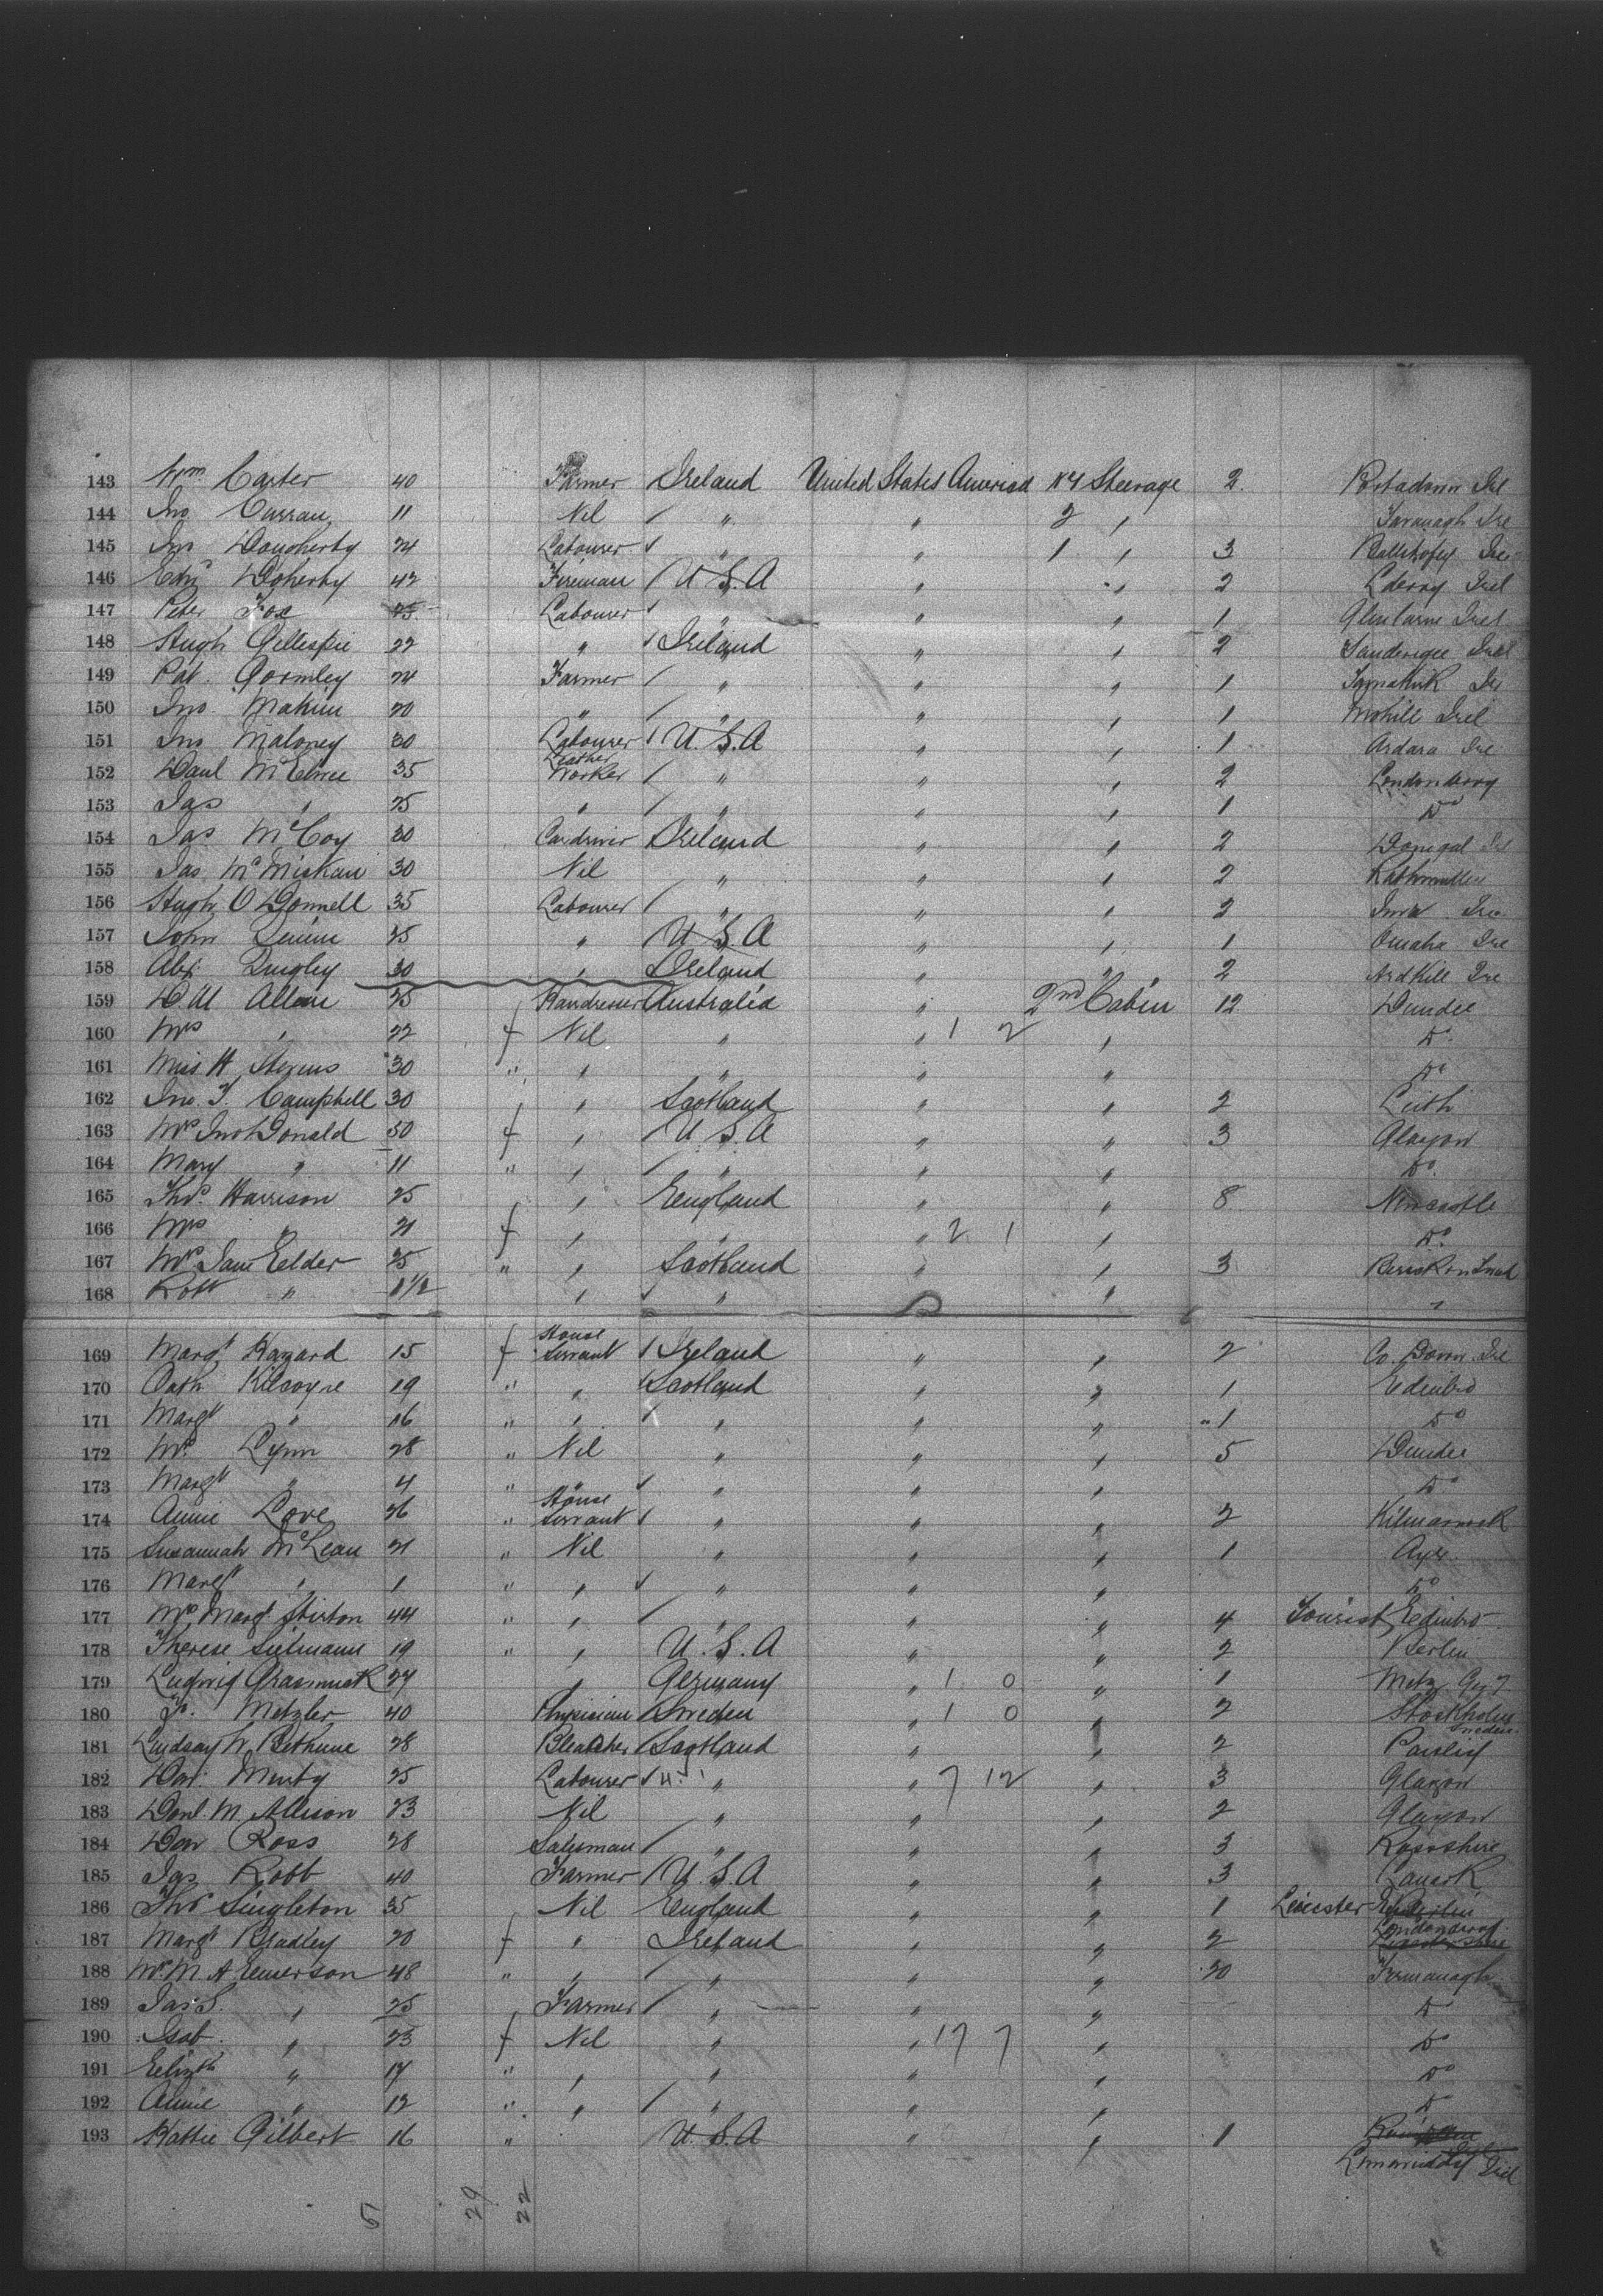 143 Wm Carter 40 Farmer Ireland United States America NY Steerage 2 Portadown Ire
144 Jno Curran 11 Nil / " " 2 " Ire
145 Jno Dougherty 24 Labourer " " 1 " 3 Ballibofey Ire
146 Edwd Doherty 42 Fireman / U.S.A " " 2 Lderry Irel
147 Peter Fox 25 Labourer " " " 1 Irel
148 Hugh Gillespie 22 " Ireland " " 2 Tanderigee Irel
149 Pat. Gormley 24 Farmer / " " " 1 Ire
150 Jno Makim 20 " / " " " 1 Mohill Irel
151 Jno Maloney 30 Labourer U.S.A " " 1 Ardara Ire
152 Danl McElwee 35 Leather Worker / " " " 2 Londonderry
153 Jas " 25 " / " " " 1 Do
154 Jas McCoy 30 Cardriver Ireland " " 2 Donegal Irl
155 Jas McMiskan 30 Nil " " " 2 Rathmullen
156 Hugh O'Donnell 35 Labourer / " " " 2 Inver Ire
157 John 25 " U.S.A " " 1 Omaha Ire
158 Alex Quigley 30 " Ireland " " 2 Ardkill Ire
159 D.M Allan 25 Australia " 2nd Cabin 12 Dundee
160 Mrs " 22 f Nil " " 1 2 " Do
161 Miss H Stevens 30 " " " " " Do
162 Jno. F. Campbell 30 " Scotland " " 2 Leith
163 Mrs Jno Donald 50 f " / U.S.A " " 3 Glasgow
164 Mary " 11 " " / " " " Do
165 Thos. Harrison 25 " England " " 8 Newcastle
166 Mrs " 21 f " " " 2 1 " Do
167 Mrs Jane Elder 25 " " Scotland " " 3
168 Robt " 1 1/2 " " " "
169 Margt Hazard 15 f House Servant / Ireland " " 2 Co. Down Ire
170 Cath Kilcoyne 19 " " Scotland " " 1 Edinbro
171 Margt " 16 " " / " " " 1 Do
172 Mrs Lynn 28 " Nil " " " 5 Dundee
173 Margt " 4 " " " " Do
174 Annie Love 26 " House Servant " " " 2 Kilmarnock
175 Susannah McLean 21 " Nil " " " 1 Ayr
176 Margt " 1 " " " " " Do
177 Mrs Margt Stirton 44 " " / " " " 4 Tourist Edinbro
178 Therese Sielmann 19 " " U.S.A " " 2 Berlin
179 Ludwig Grasmuck 27 " Germany " 1 0 " 1 Metz Gey
180 Metzler 40 Physician Sweden " 1 0 " 2 Stockholm Sweden
181 Lindsay W Bethune 28 Bleacher Scotland " " 2 Paisley
182 Dav. Minty 25 Labourer " " 7 12 " 3 Glasgow
183 Danl. M. Allison 23 Nil " " " 2 Glasgow
184 Dav Ross 28 Salesman / " " " 3 Rossshire
185 Jas Robb 40 Farmer / U.S.A " " 3 Lanark
186 Thos Singleton 35 Nil England " " 1 Leicester
187 Margt Bradley 20 f " Ireland " " 2 Londonderry
188 Mrs M A Emerson 48 " " / " " " 20 Fermanagh
189 Jas S. " 25 Farmer / " " " Do
190 Isab. " 23 f Nil " " 17 7 " Do
191 Elizth " 17 " " " " " Do
192 Annie " 12 " " / " " " Do
193 Hattie Gilbert 16 " U.S.A " " 1
Irel
5 29 22